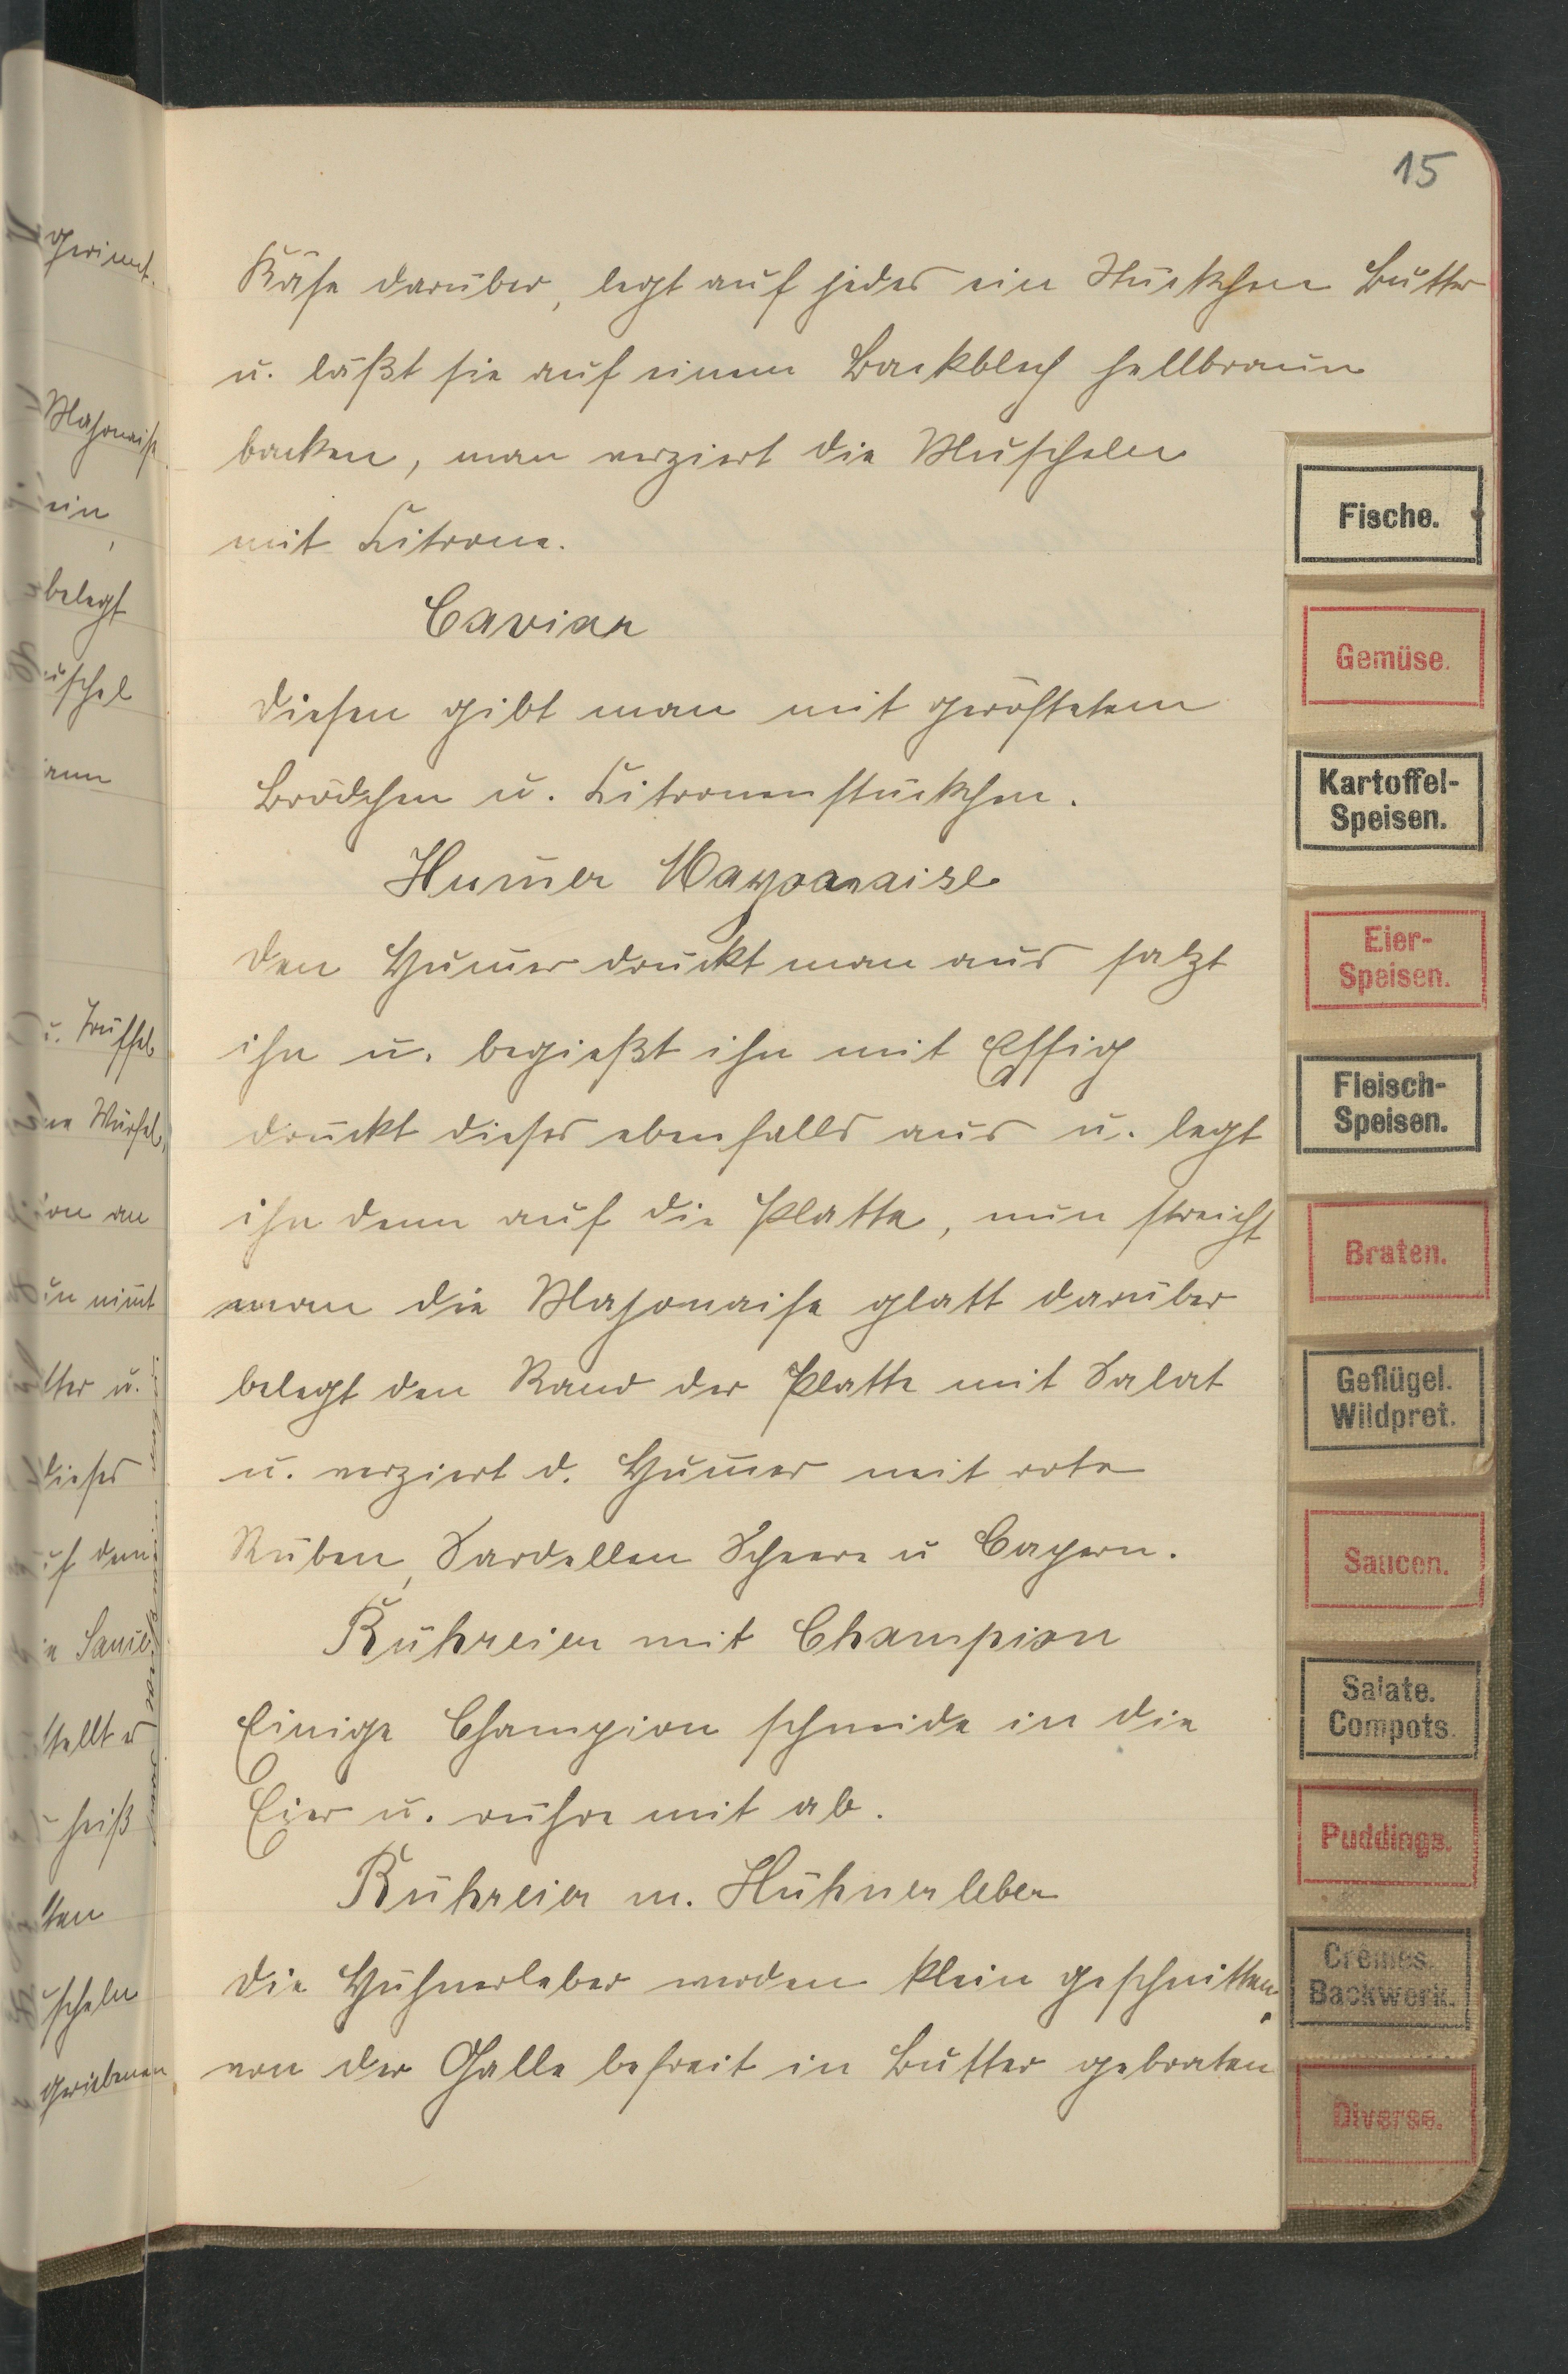 15
Käse darüber, legt auf jedes ein Stückchen Butter
u. läßt sie auf einem Backblech hellbraun
backen, man verziert die Muscheln
mit Citrone.
Caviar
Diesen gibt man mit geröstetem
Brödchen u. Citronenstückchen.
Hum̄er Mayonaise
Den Hum̄er drückt man aus salzt
ihn u. begießt ihn mit Essig
drückt dieses ebenfalls aus u. legt
ihn denn auf die Platte, nun streicht
man die Majonaise glatt darüber
belegt den Rand der Platte mit Salat
u. verziert d. Hum̄er mit rote
Rüben, Sardellen Scheere u Capern.
Rühreier mit Champion
Einige Champion schneide in die
Eier u. rühre mit ab.
Rühreier m. Hühnerleber
Die Hühnerleber werden klein geschnitten,
von der Galle befreit in Butter gebraten
Fische.
Gemüse.
Kartoffel-
Speisen.
Eier-
Speisen.
Fleisch-
Speisen.
Braten.
Geflügel.
Wildpret.
Saucen.
Salate.
Compots.
Puddings.
Crêmes.
Backwerk.
Diverse.
Majonaise
ein,
belegt
u. Trüffel
Würfel,
nim̄t
dieses
heiß
geriebenen